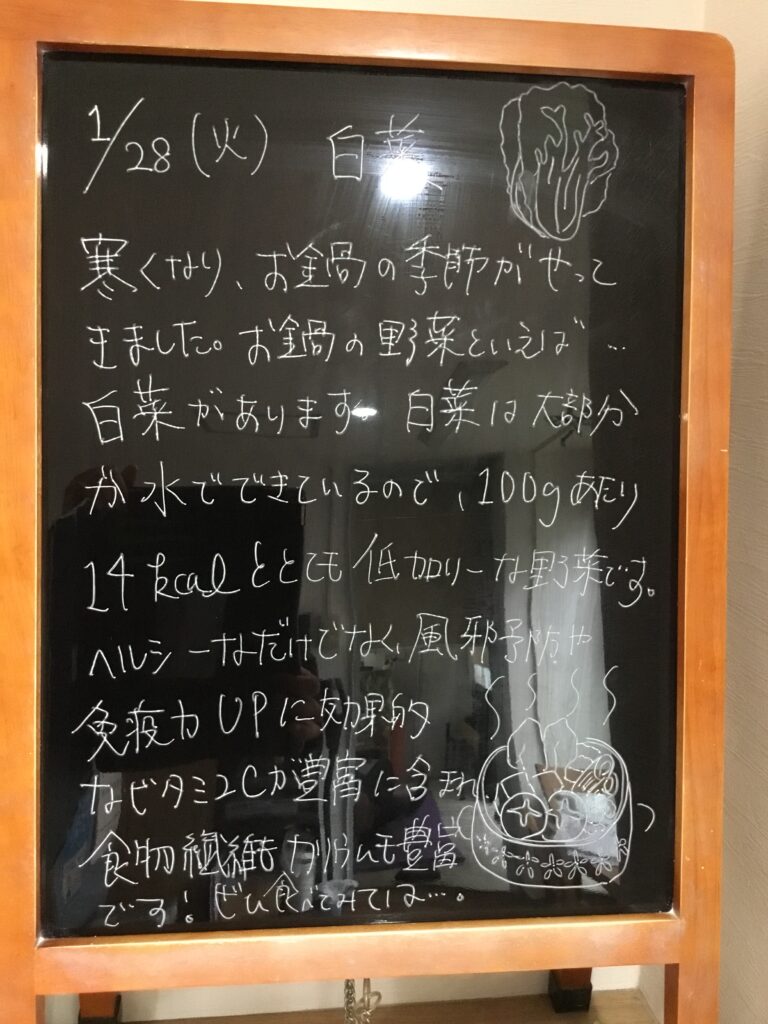 1/28(火) 白菜
寒くなり、お鍋の季節がやって
きました。お鍋の野菜といえば…
白菜があります。白菜は大部分
が水でできているので、100gあたり
14kcalととても低カロリーな野菜です。
ヘルシーなだけでなく、風邪予防や
免疫力UPに効果的
なビタミンCが豊富に含まれ、
食物繊維もカリウムも豊富
です!ぜひ食べてみては…。